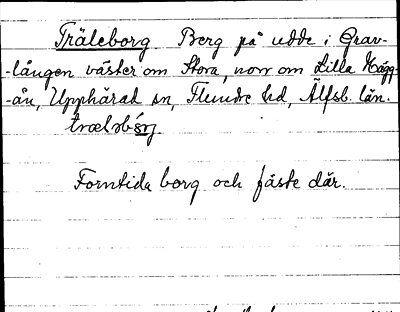 Träleborg Berg på udde i Grav-
-lången väster om Stora, norr om Lilla Hägg-
-ån, Upphärad sn, Flundre hd, Älfsb. län.
Forntida borg och fäste där.